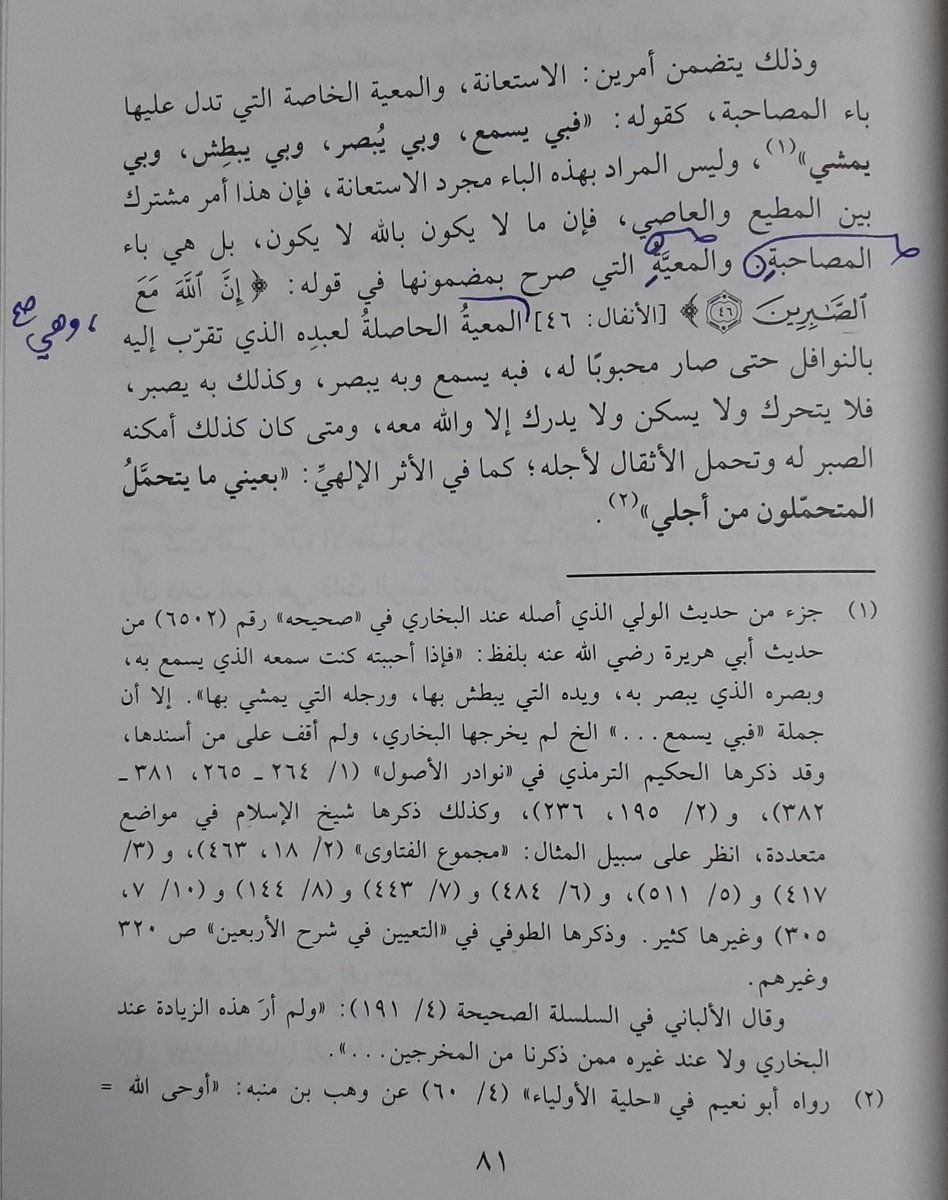 وذلك يتضمن أمرين: الاستعانة، والمعية الخاصة التي تدل عليها
باء المصاحبة، كقوله: «فبي يسمع، وبي يُبصر، وبي يبطِش، وبي
يمشي»(١)، وليس المراد بهذه الباء مجرد الاستعانة، فإن هذا أمر مشترك
بين المطيع والعاصي، فإن ما لا يكون بالله لا يكون، بل هي باء
المصاحبةِ والمعيَّةِ التي صرح بمضمونها في قوله: ﴿إِنَّ ٱللَّهَ مَعَ
ٱلصَّـٰبِرِينَ ٤٦﴾ [الأنفال: ٤٦] المعيةُ الحاصلةُ لعبدِه الذي تقرّب إليه
، وهي صح
بالنوافل حتى صار محبوبًا له، فبه يسمع وبه يبصر، وكذلك به يصبر،
فلا يتحرك ولا يسكن ولا يدرك إلا والله معه، ومتى كان كذلك أمكنه
الصبر له وتحمل الأثقال لأجله؛ كما في الأثر الإلهيِّ: «بعيني ما يتحمَّلُ
المتحمّلون من أجلي»(٢).
(١) جزء من حديث الولي الذي أصله عند البخاري في «صحيحه» رقم (٦٥٠٢) من
حديث أبي هريرة رضي الله عنه بلفظ: «فإذا أحببته كنت سمعه الذي يسمع به،
وبصره الذي يبصر به، ويده التي يبطش بها، ورجله التي يمشي بها». إلا أن
جملة «فبي يسمع...» الخ لم يخرجها البخاري، ولم أقف على من أسندها،
وقد ذكرها الحكيم الترمذي في «نوادر الأصول» (١/ ٢٦٤ ـ ٢٦٥، ٣٨١ ـ
٣٨٢)، و (٢/ ١٩٥، ٢٣٦)، وكذلك ذكرها شيخ الإسلام في مواضع
متعددة، انظر على سبيل المثال: «مجموع الفتاوى» (٢/ ١٨، ٤٦٣)، و (٣/
٤١٧) و (٥/ ٥١١)، و (٦/ ٤٨٤) و (٧/ ٤٤٣) و (٨/ ١٤٤) و (١٠/ ٧،
٣٠٥) وغيرها كثير. وذكرها الطوفي في «التعيين في شرح الأربعين» ص ٣٢٠
وغيرهم.
وقال الألباني في السلسلة الصحيحة (٤/ ١٩١): «ولم أرَ هذه الزيادة عند
البخاري ولا عند غيره ممن ذكرنا من المخرجين...».
(٢) رواه أبو نعيم في «حلية الأولياء» (٤/ ٦٠) عن وهب بن منبه: «أوحى الله =
٨١